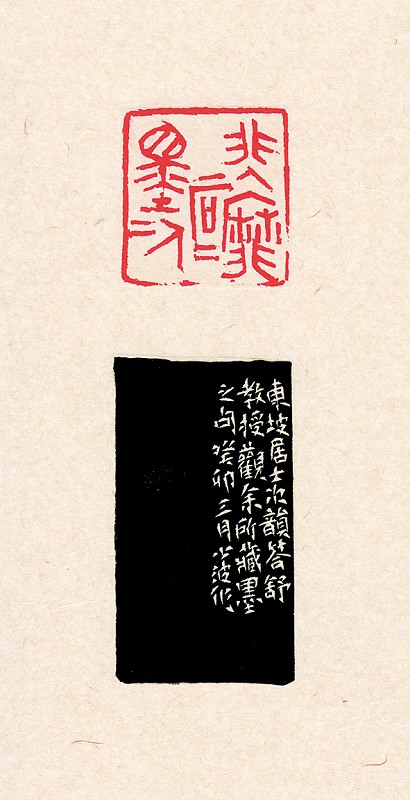 非人磨〻
墨〻人
東坡居士次韻答舒
教授觀余所藏墨
之句癸卯三月少波作